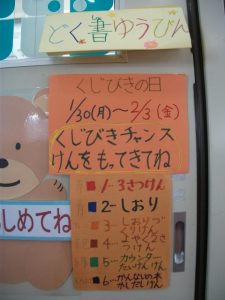 どく書ゆうびん
くじびきの日
1/30(月)〜2/3(金)
くじびきチャンス
けんをもってきてね
しめてね
1…3さつけん
2…しおり
3…しおりづ
くりけん
4…よやく2さ
つけん
5…カウンター
たいけんけん
6…かんなしの本
かしだしけん